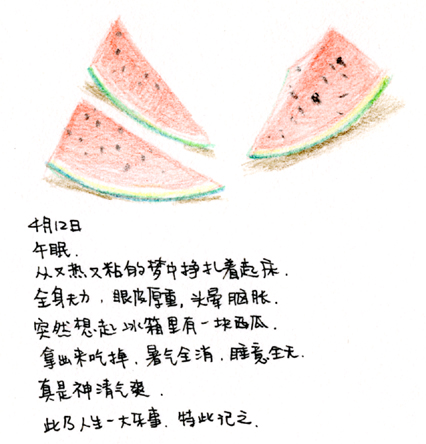 4月12日
午眠.
从又热又粘的梦中挣扎着起床.
全身无力,眼皮厚重,头晕脑胀.
突然想起冰箱里有一块西瓜.
拿出来吃掉.暑气全消.睡意全无.
真是神清气爽.
此乃人生一大乐事.特此记之.